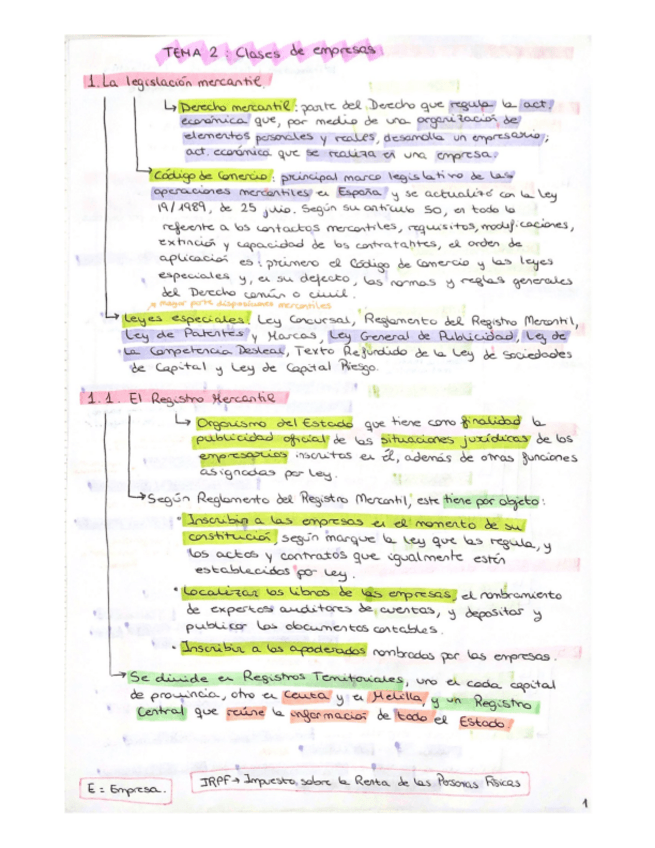 TEMA 2: Clases de empresas
1. La legislación mercantil.
↳ Derecho mercantil: parte del Derecho que regula la act.
económica que, por medio de una organización de
elementos personales y reales, desarrolla un empresario;
act. económica que se realiza en una empresa.
Código de Comercio: principal marco legislativo de las
operaciones mercantiles en España y se actualizó con la Ley
19/1989, de 25 julio. Según su artículo 50, en todo lo
referente a los contactos mercantiles, requisitos, modificaciones,
extinción y capacidad de los contratantes, el orden de
aplicación es: primero el Código de Comercio y las leyes
especiales y, en su defecto, las normas y reglas generales
del Derecho común o civil.
mayor parte disposiciones mercantiles
Leyes especiales: Ley Concursal, Reglamento del Registro Mercantil,
Ley de Patentes y Marcas, Ley General de Publicidad, Ley de
la Competencia Desleal, Texto Refundido de la Ley de Sociedades
de Capital y Ley de Capital Riesgo.
1.1. El Registro Mercantil
↳ Organismo del Estado que tiene como finalidad la
publicidad oficial de las situaciones jurídicas de los
empresarios inscritos en él, además de otras funciones
asignadas por ley.
→ Según Reglamento del Registro Mercantil, este tiene por objeto:
· Inscribir a las empresas en el momento de su
constitución, según marque la ley que las regula, y
los actos y contratos que igualmente estén
establecidos por ley.
· Localizar los libros de las empresas, el nombramiento
de expertos auditores de cuentas, y depositar y
publicar los documentos contables.
· Inscribir a los apoderados nombrados por las empresas.
→ Se divide en Registros Territoriales, uno en cada capital
de provincia, otro en Ceuta y en Melilla, y un Registro
Central que reúne la información de todo el Estado.
E = Empresa.
IRPF → Impuesto sobre la Renta de las Personas Físicas
1